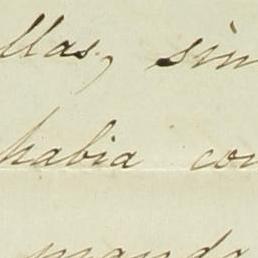 llas, sin
habia con
manda